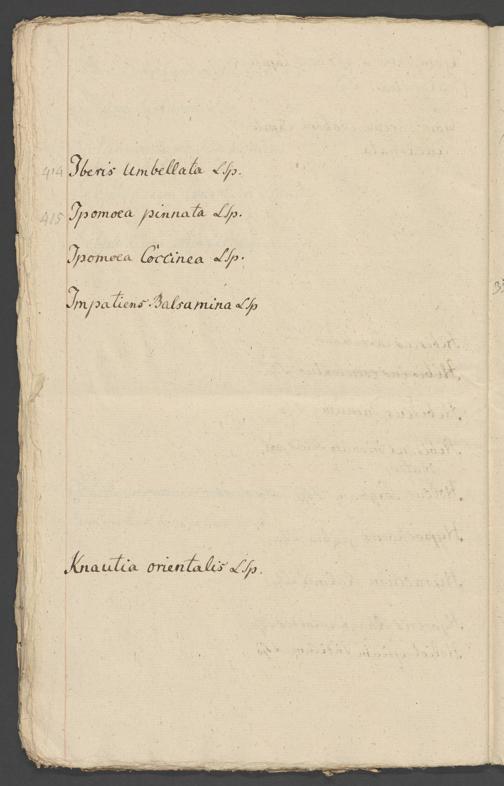 414 Iberis Umbellata LSp.
415 Ipomoea pinnata LSp.
Ipomoea Coccinea LSp.
Impatiens Balsamina LSp
Knautia orientalis LSp.